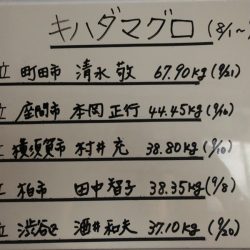 キハダマグロ (8/1~
位 町田市 清水 敬 67.90kg (8/21)
位 座間市 本岡 正行 44.45kg (8/10)
位 横須賀市 村井 充 38.80kg (8/10)
位 柏市 田中 智子 38.35kg (9/8)
位 渋谷区 酒井 和夫 37.10kg (8/20)